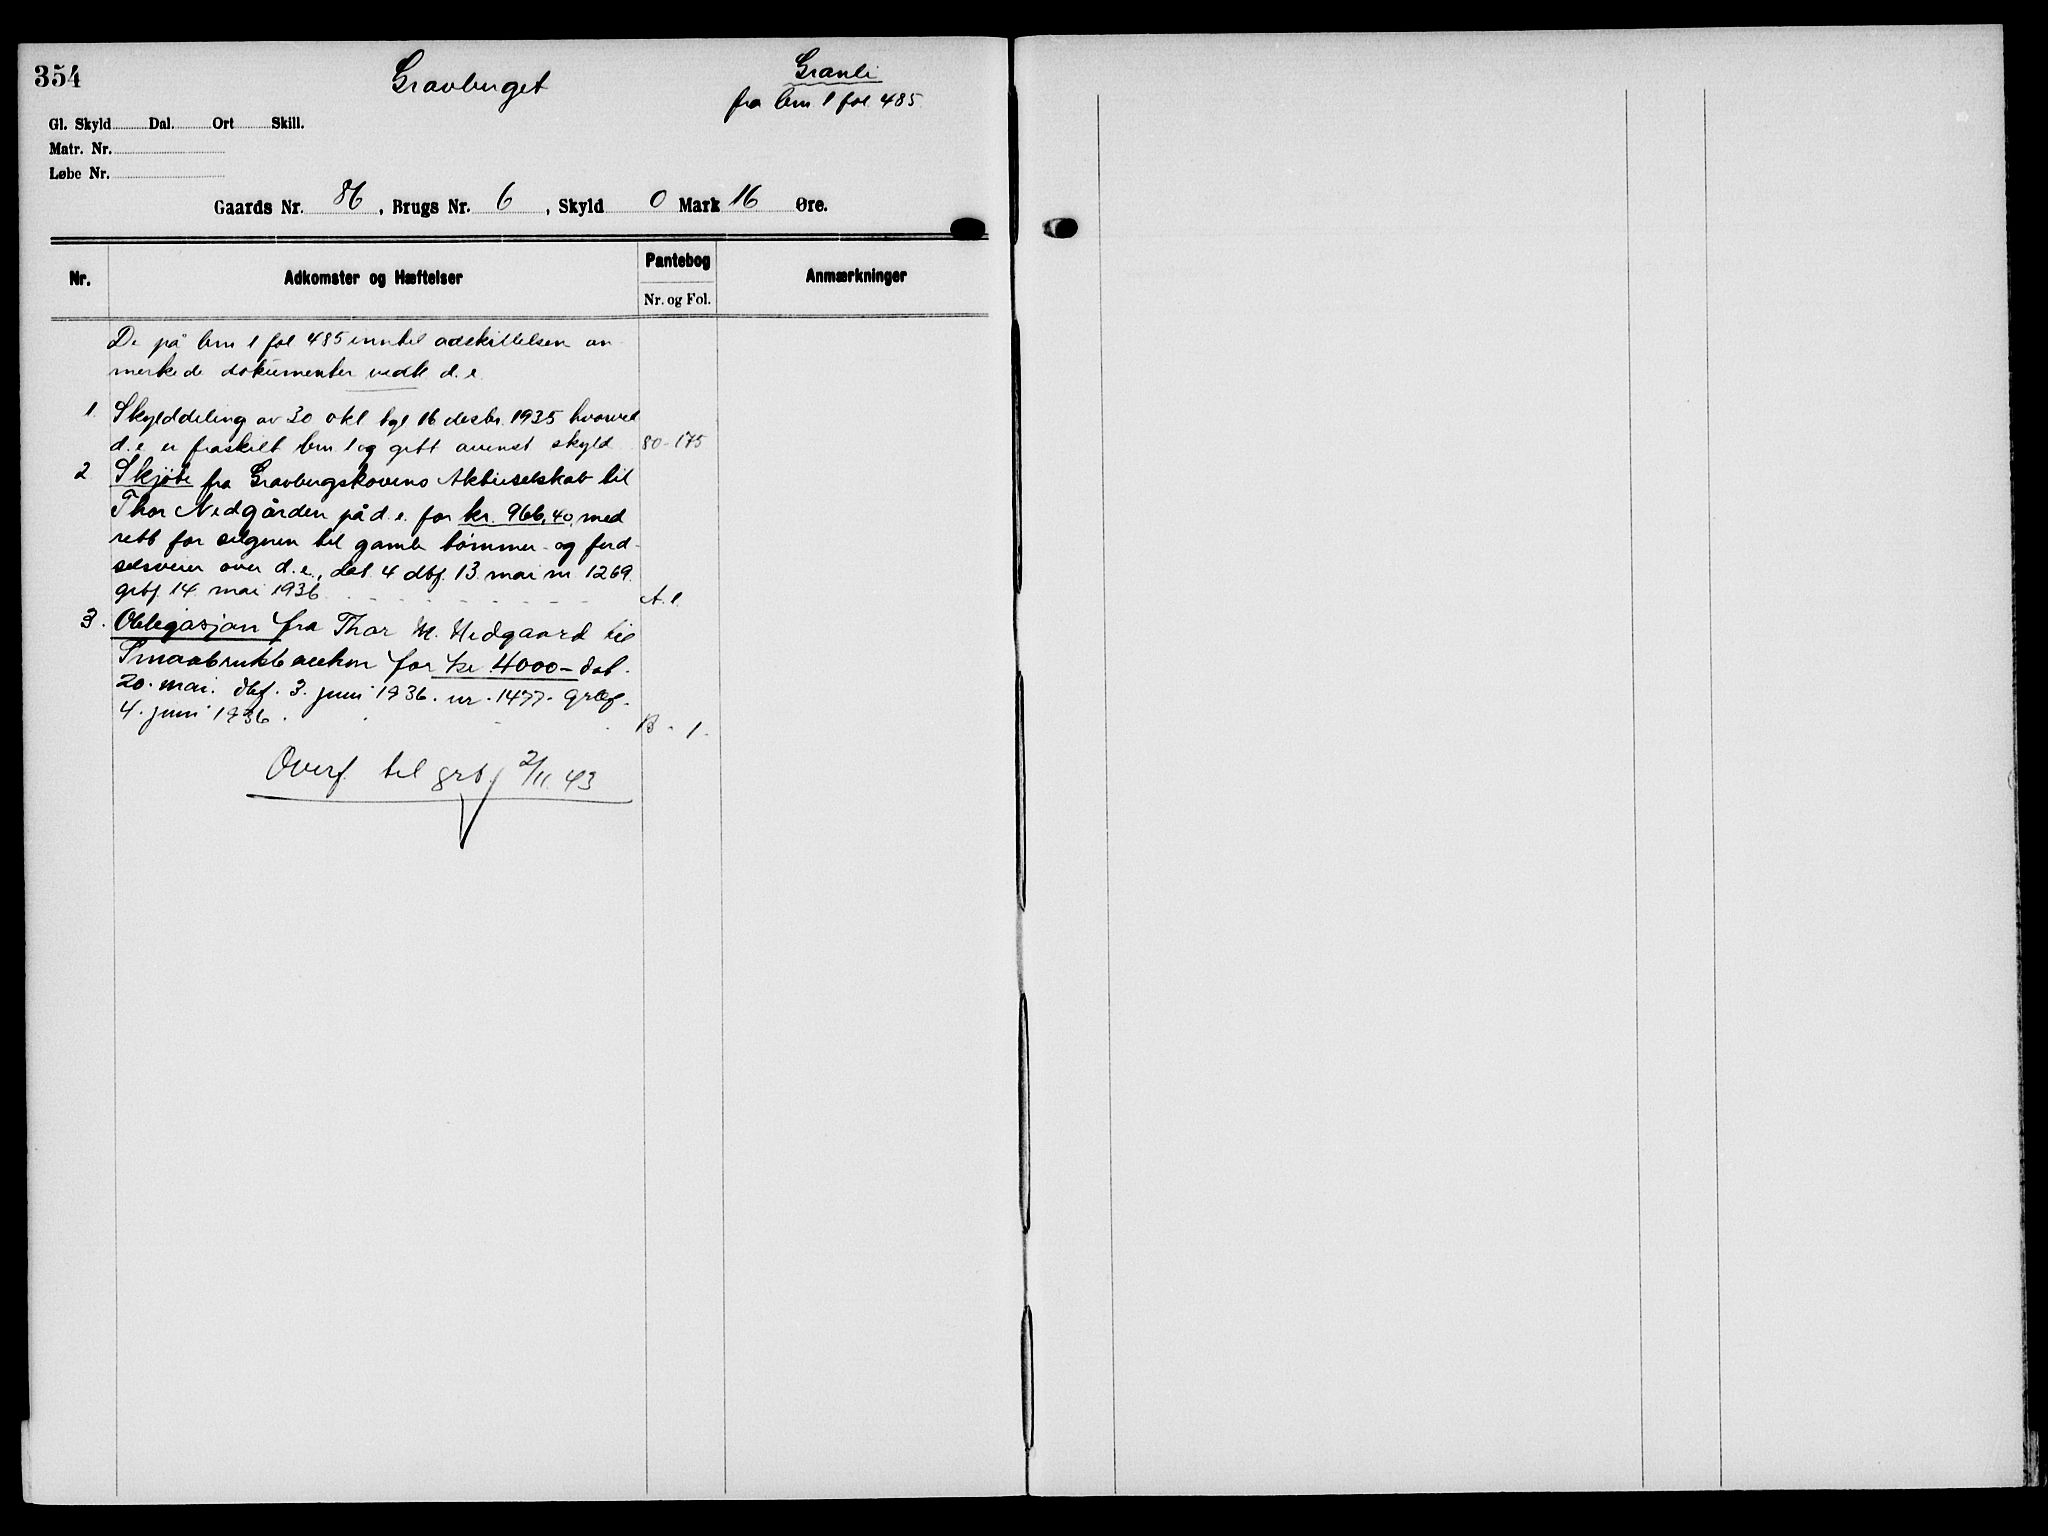 354
Gravberget
Granli
fra brn 1 fol. 485
Gl. Skyld Dal. Ort Skill.
Matr. Nr.
Løbe Nr.
Gaards Nr. 86, Brugs Nr. 6, Skyld 0 Mark 16 Øre.
Nr. Adkomster og Hæftelser Pantebog Anmærkninger
Nr. og Fol.
De på brn 1 fol 485 inntil adskillelsen an-
merkede dokumenter vedk d.e.
1. Skylddeling av 30 okt tgl 16 desbr. 1935 hvorved
d.e. er fraskilt brn 1 og gitt avenst skyld 80-175
2 Skjöte fra Gravbergskovens Aktieselskab til
Thor Nedgården på d.e. for kr. 966,40, med
rett for selgeren til gamle tømmer- og ferd-
selsveier over d.e., dat. 4 dbf. 13. mai nr 1269.
grbf 14. mai 1936 A. 1.
3. Obligasjon fra Thor M. Nedgaard til
Smaabrukbanken for kr. 4000- dat.
20. mai. dbf. 3. juni 1936. nr. 1477. grbf.
4. juni 1936. B - 1.
Overf. til grbf 2/11. 43